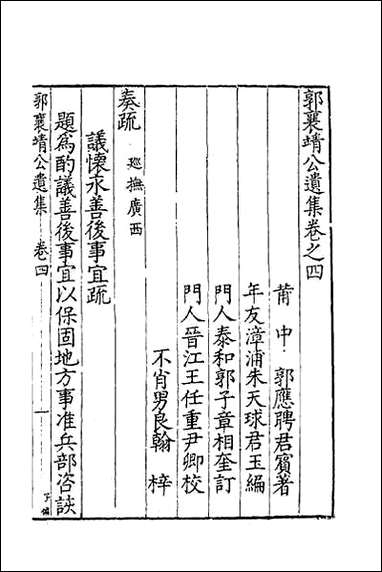 郭襄靖公遺集卷之四
莆中郭應聘君賓著
年友漳浦朱天球君玉編
門人泰和郭子章相奎訂
門人晉江王任重尹卿校
不肖男良翰梓
奏疏 廵撫廣西
議懷永善後事宜疏
題爲酌議善後事宜以保固地方事准兵部咨該
郭襄靖公遺集 卷四 一